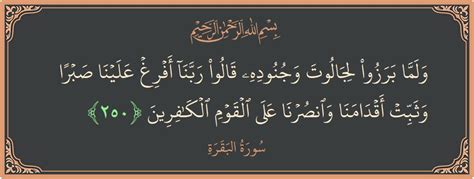 بِسْمِ اللَّهِ الرَّحْمَٰنِ الرَّحِيمِ
وَلَمَّا بَرَزُوا۟ لِجَالُوتَ وَجُنُودِهِۦ قَالُوا۟ رَبَّنَآ أَفْرِغْ عَلَيْنَا صَبْرًا
وَثَبِّتْ أَقْدَامَنَا وَٱنصُرْنَا عَلَى ٱلْقَوْمِ ٱلْكَٰفِرِينَ ﴿٢٥٠﴾
سُورَةُ البَقَرَةِ